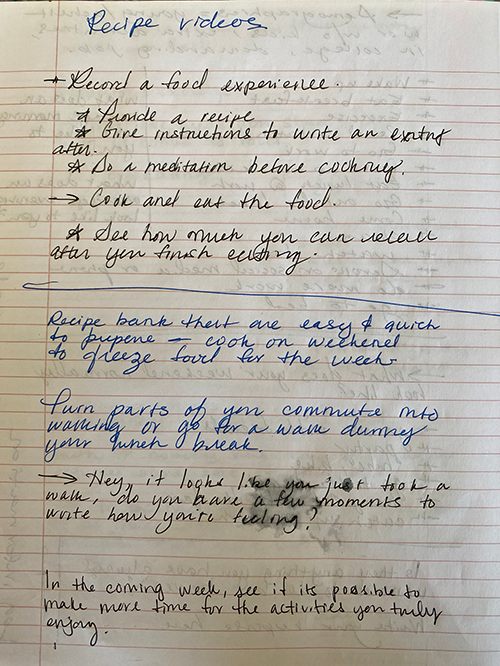 Recipe videos
→ Record a food experience.
* Provide a recipe
* Give instructions to write an
after.
* Do a meditation before cooking.
→ Cook and eat the food.
* See how much you can recall
after you finish eating.
Recipe bank that are easy & quick
to prepare — cook on weekend
to freeze food for the week.
Turn parts of you commute into
walking or go for a walk during
your lunch break.
→ Hey, it looks like you just took a
walk, do you have a few moments to
write how you're feeling?
In the coming week, see if its possible to
make more time for the activities you truly
enjoy.